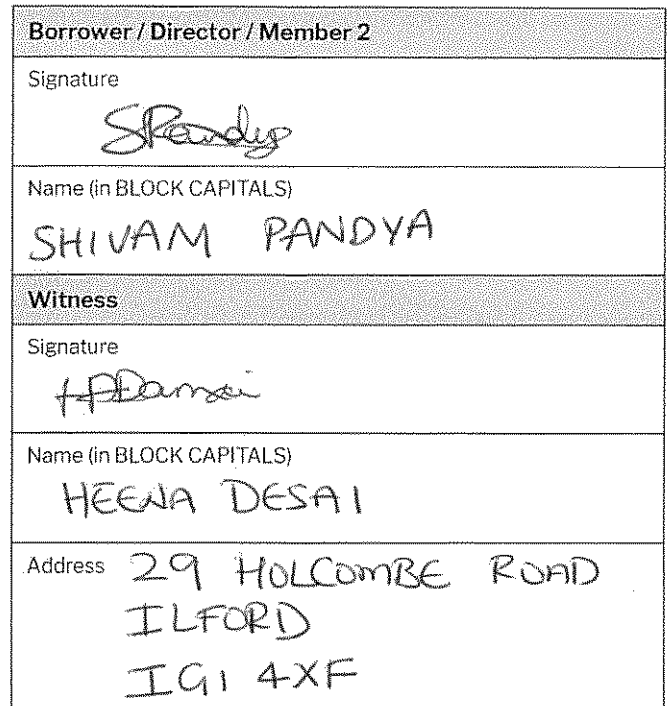 Borrower / Director / Member 2
Signature
SPandya
Name (in BLOCK CAPITALS)
SHIVAM PANDYA
Witness
Signature
Name (in BLOCK CAPITALS)
HEENA DESAI
Address 29 HOLCOMBE ROAD
ILFORD
IG1 4XF